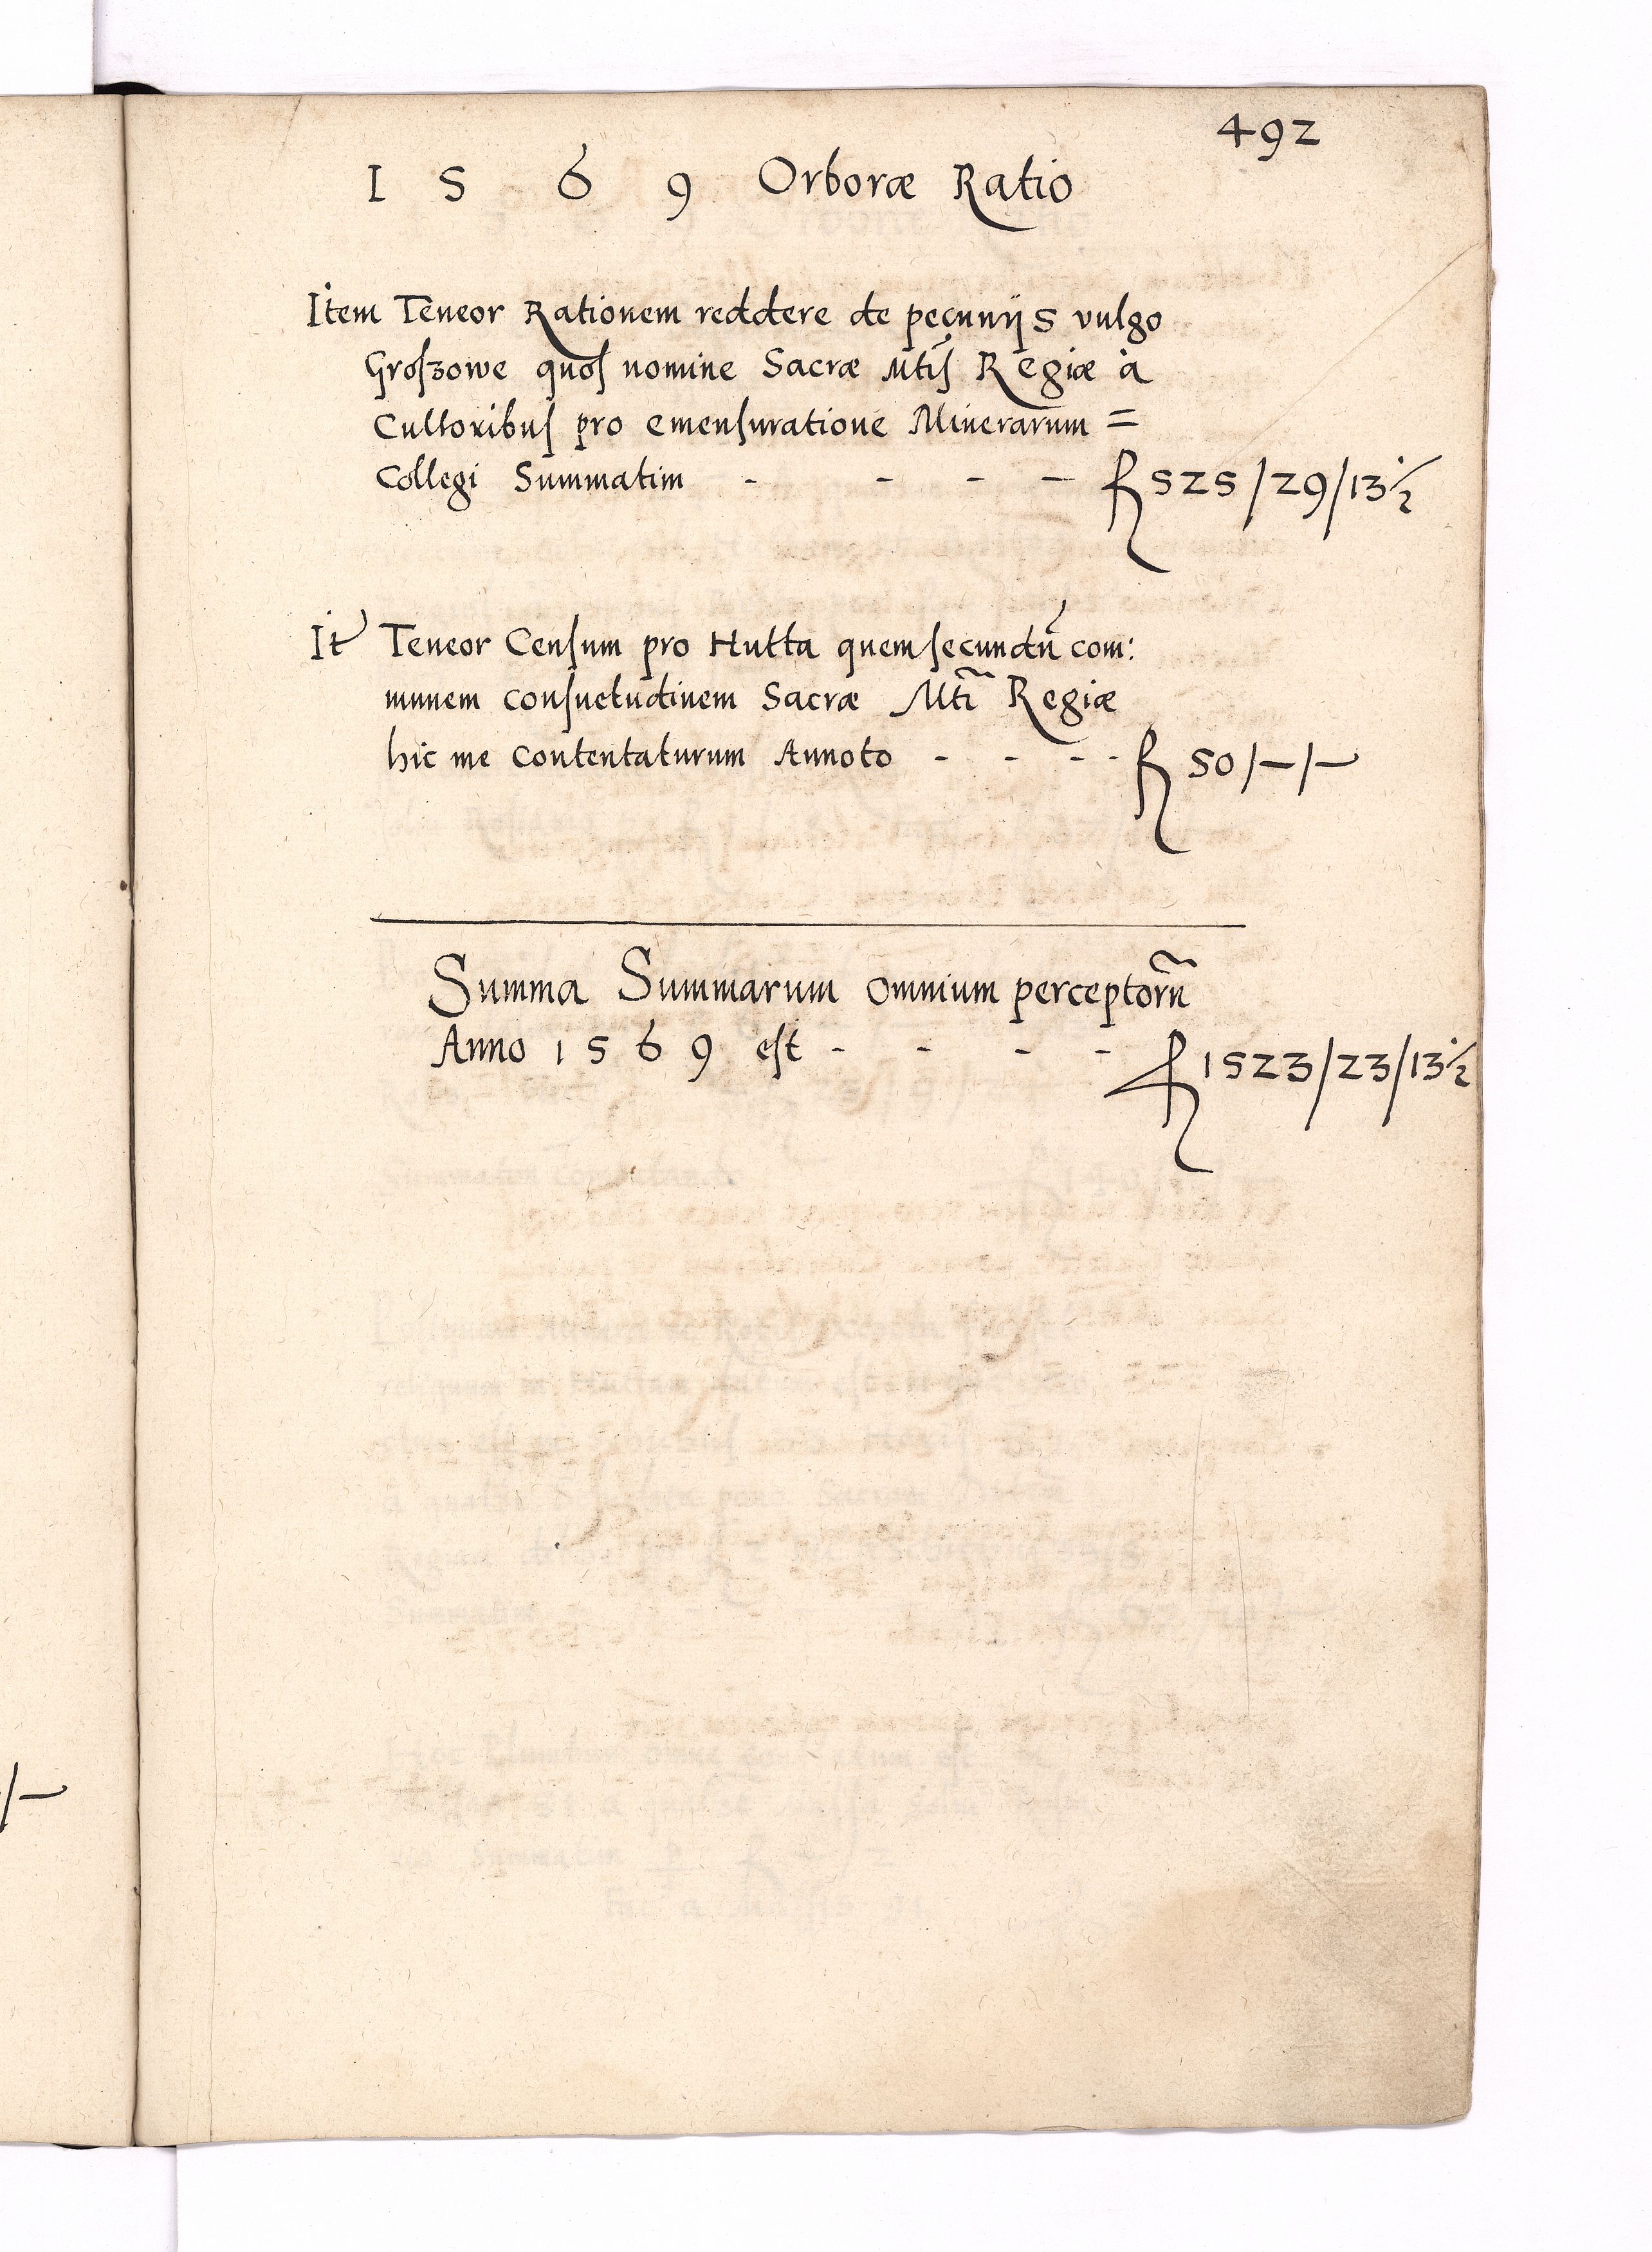 492
1 5 6 9 Orboræ Ratio
Item Teneor Rationem reddere de pecunijs vulgo
Groſzowe quoſ nomine Sacræ Mtiſ Regiæ à
Cultoribuſ pro emenſuratione Minerarum =
Collegi Summatim - - - - 525/29/13½
It Teneor Cenſum pro Hutta quem ſecundũ com:
munem conſuetudinem Sacræ Mti Regiæ
hic me contentaturum Annoto - - - - 50/-/-
Summa Summarum omnium perceptorũ
Anno 1 5 6 9 eſt - - - - 1523/23/13½